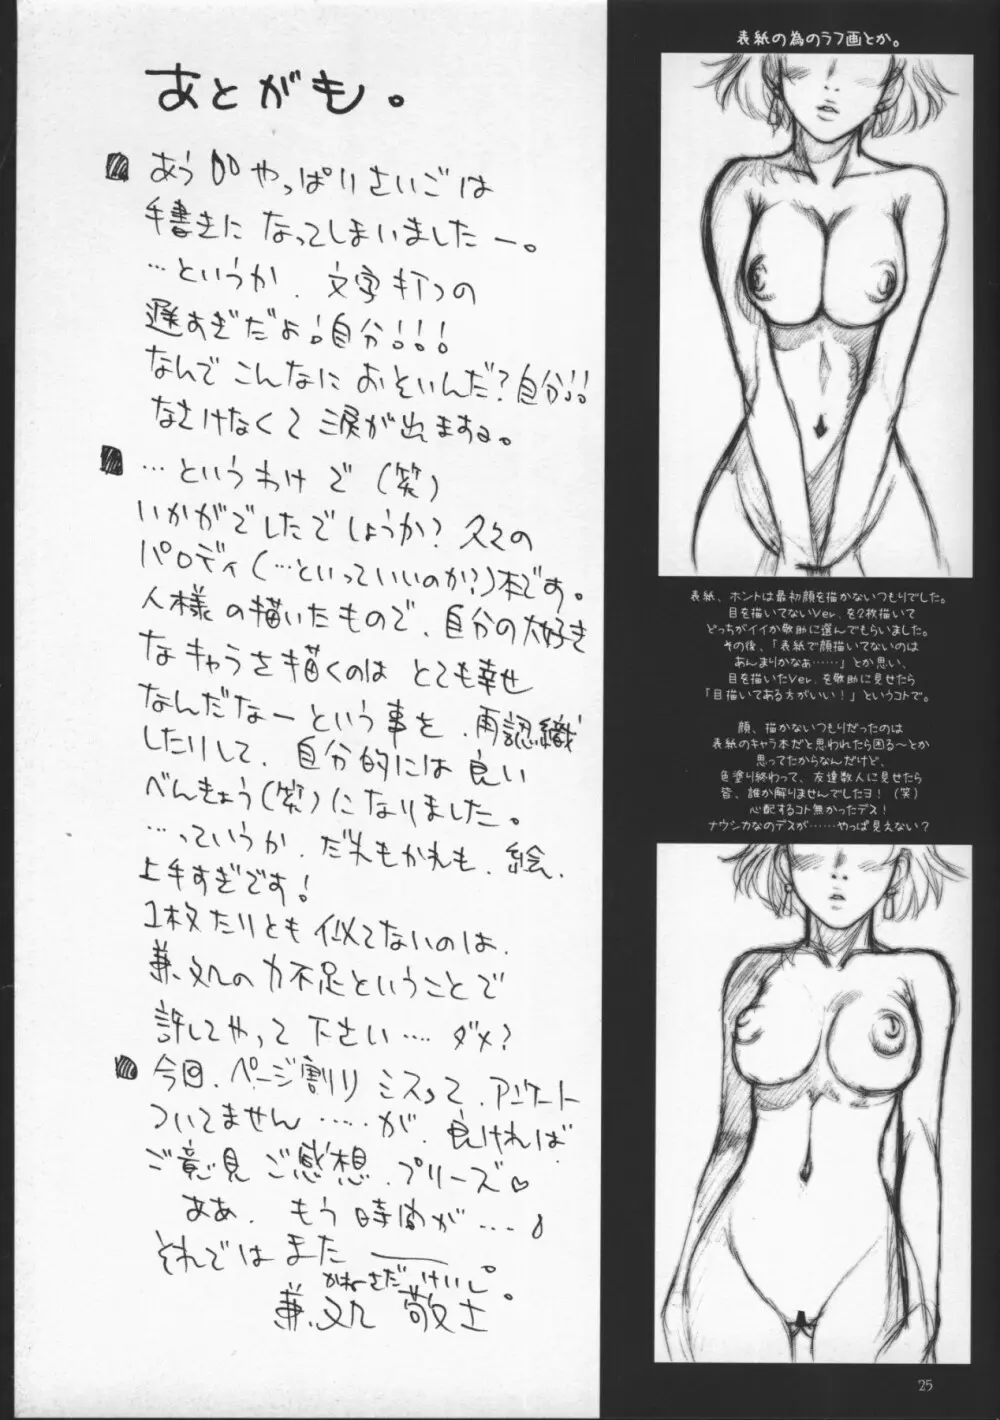 あとがも。
あう やっぱりさいごは
手書きに なってしまいましたー。
…というか、文字打つの
遅すぎだよ!自分!!!
なんで こんなに おそいんだ?自分!!
なさけなくて 涙が出ますよ。
…というわけで(笑)
いかがでしたでしょうか?久々の
パロディ(…といっていいのか?)本です。
人様の描いたもので、自分の大好き
なキャラを描くのは とても幸せ
なんだなーという事を、再認織
したりして、自分的には良い
べんきょう(笑)になりました。
…っていうか、だれもかれも、絵、
上手すぎです!
1枚たりとも似てないのは、
兼処の力不足ということで
許してやって下さい…. ダメ?
今回、ページ割りミスって、アンケート
ついてません……が、良ければ
ご意見ご感想、プリーズ♡
ああ、もう時間が….
それでは また
かねさだ けいし。
兼処 敬士
表紙の為のラフ画とか。
表紙、ホントは最初顔を描かないつもりでした。
目を描いてないVer.を2枚描いて
どっちがイイか敬助に選んでもらいました。
その後、「表紙で顔描いてないのは
あんまりかなぁ……」とか思い、
目を描いたVer.を敬助に見せたら
「目描いてある方がいい!」というコトで。
顔、描かないつもりだったのは
表紙のキャラ本だと思われたら困る〜とか
思ってたからなんだけど、
色塗り終わって、友達数人に見せたら
皆、誰か解りませんでしたヨ!(笑)
心配するコト無かったデス!
ナウシカなのデスが……やっぱ見えない?
25